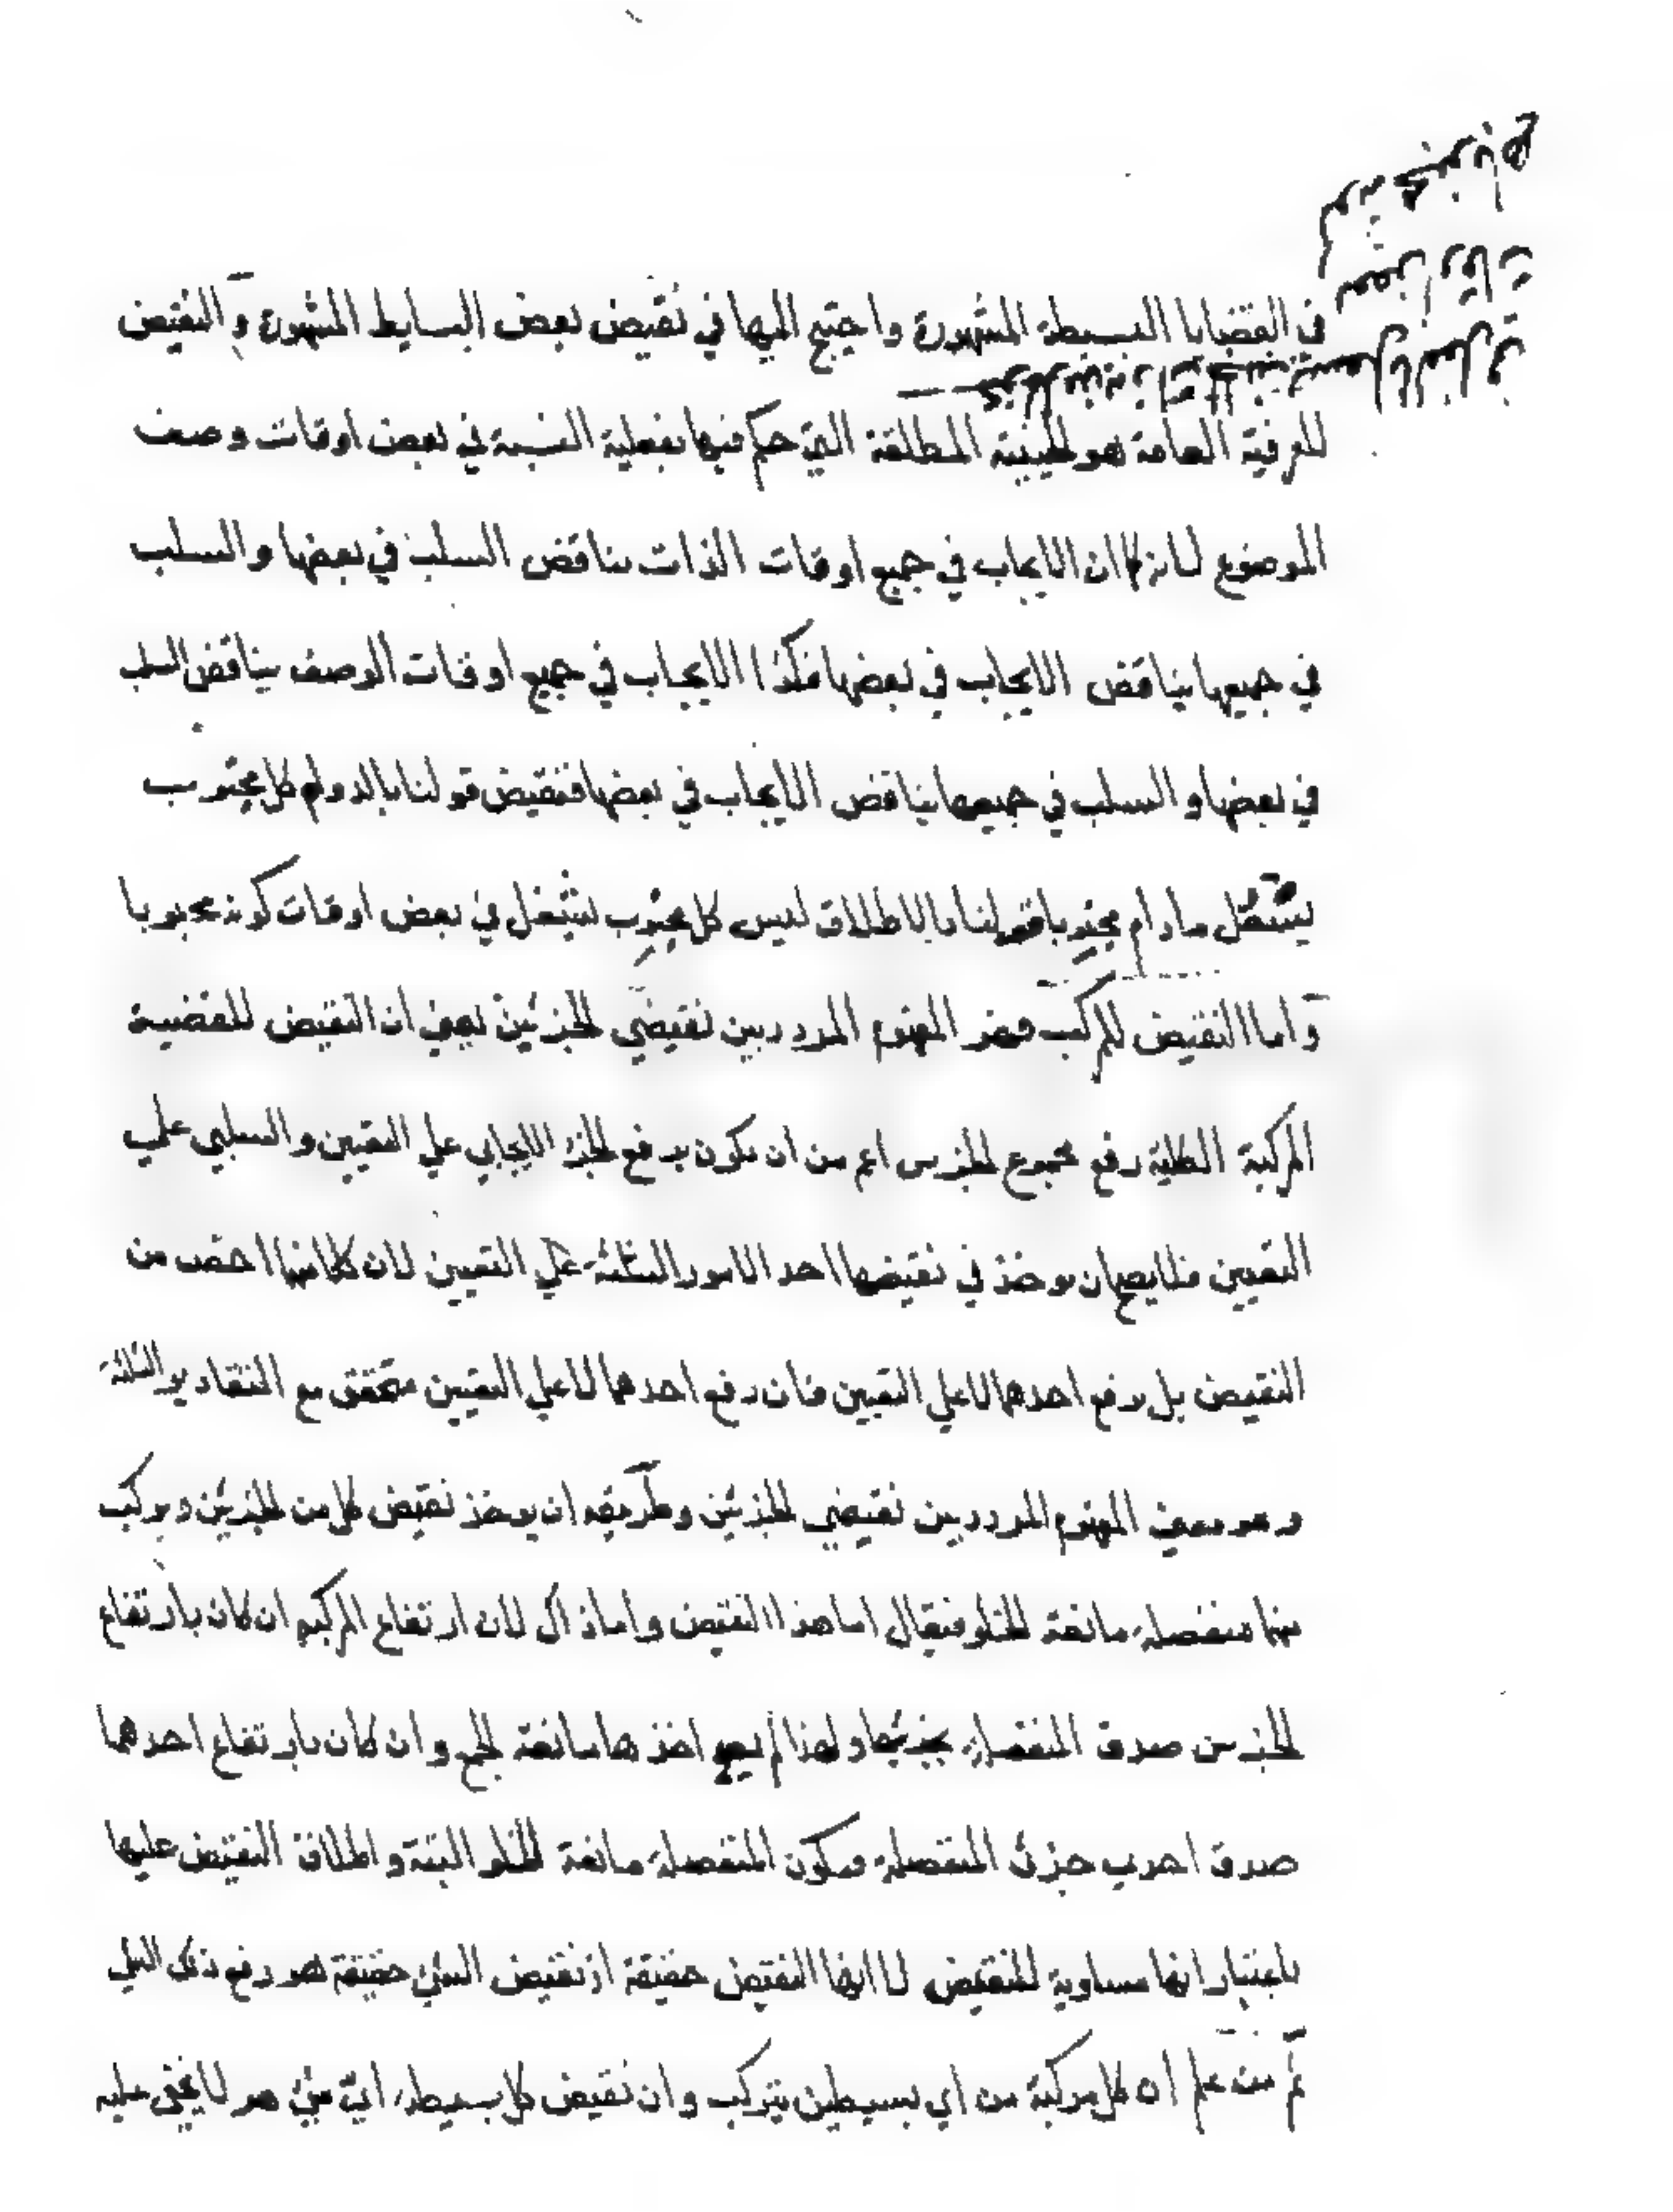 في القضايا البسيطة المشهورة واحتيج اليها في نقيض بعض البسايط المشهورة و النقيض
للعرفية العامة هو الحينية المطلقة التي حكم فيها بفعلية النسبة في بعض اوقات وصف
الموضوع لانه كما ان الايجاب في جميع اوقات الذات يناقض السلب في بعضها والسلب
في جميعها يناقض الايجاب في بعضها فكذا الايجاب في جميع اوقات الوصف يناقض السلب
في بعضها و السلب في جميعها يناقض الايجاب في بعضها فنقيض قولنا بالدوام كل مجنوب
يسعل مادام مجنوبا قولنا بالاطلاق ليس كل مجنوب يسعل في بعض اوقات كونه مجنوبا
و اما النقيض للمركب فهو المفهوم المردد بين نقيضي الجزئين يعني ان النقيض للقضية
المركبة الكلية رفع مجموع الجزئين اعم من ان يكون برفع الجزء الايجابي علي التعيين والسلبي علي
التعيين فلا يصح ان يوخذ في نقيضها احد الامور الثلثة علي التعيين لان كلا منها اخص من
النقيض بل يرفع احدهما لا علي التعيين فان رفع احدهما لا علي التعيين متحقق مع التقادير الثلثة
و هو معني المفهوم المردد بين نقيضي الجزئين وطريقه ان يوخذ نقيض كل من الجزئين ويركب
منهما منفصلة مانعة الخلو فيقال اما هذا النقيض واما ذاك لان ارتفاع المركبة ان كان بارتفاع
الجزئين صدق المنفصلة بجزئيها ولهذا لم يصح اخذها مانعة الجمع وان كان بارتفاع احدهما
صدق احدي جزئ المنفصلة فيكون المنفصلة مانعة الخلو البتة واطلاق النقيض عليها
باعتبار انها مساوية للنقيض لا انها النقيض حقيقة اذ نقيض الشئ حقيقة هو رفع ذلك الشئ
ثم من علم ان كل مركبة من اي بسيطين يتركب وان نقيض كل بسيطة اي شئ هو لا يخفي عليه